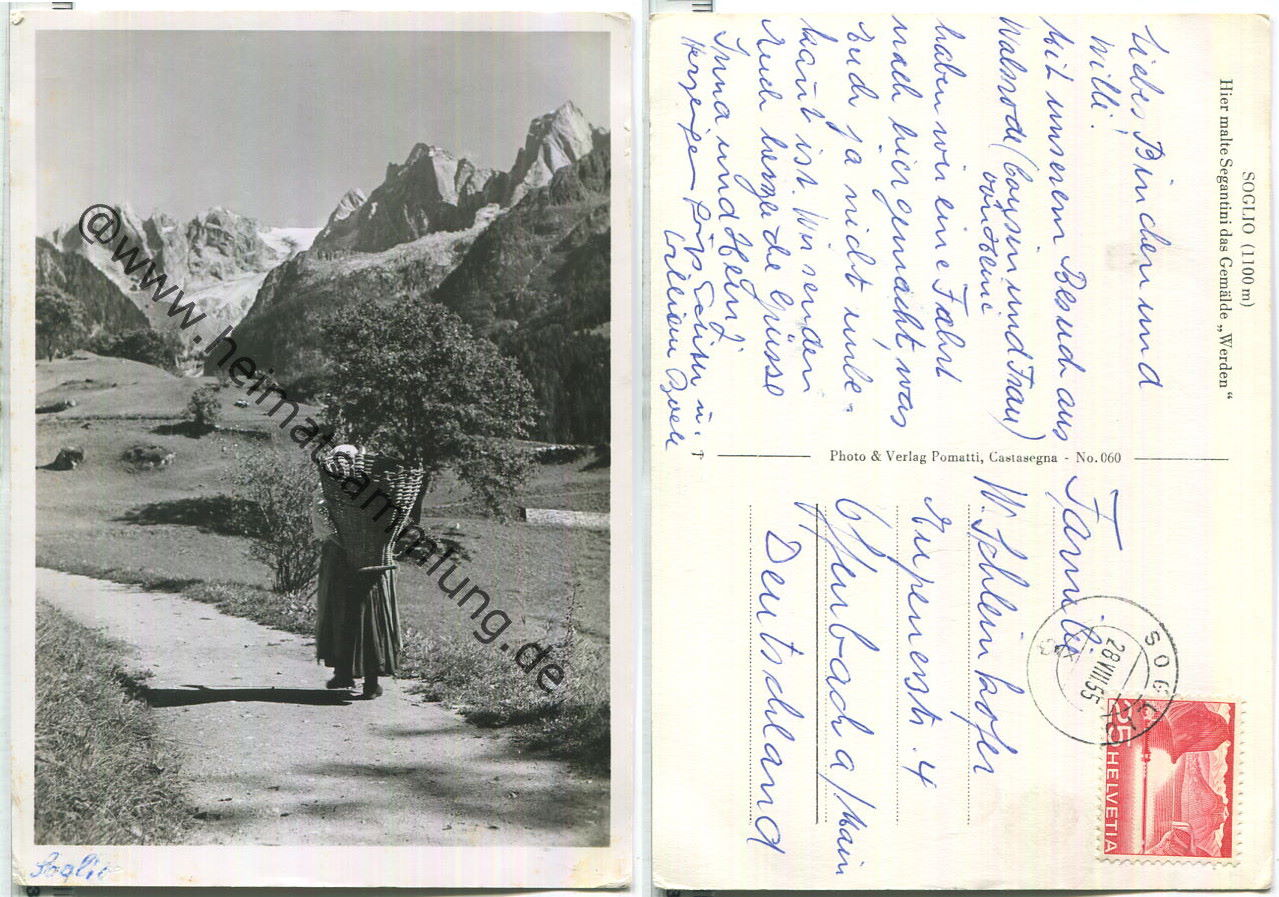 © www.heimatsammlung.de
Soglio
SOGLIO (1100 m)
Hier malte Segantini das Gemälde „Werden“
Liebes Binchen und
Willi!
Mit unserem Besuch aus
Walsrode (Cousin und Frau)
haben wir eine Fahrt
nach hier gemacht, was
Euch ja nicht unbe-
kannt ist. Wir senden
Euch herzliche Grüsse
Inna und
Herzigen
Photo & Verlag Pomatti, Castasegna - No. 060
Familie
W. Schleinkofer
Eupenerstr. 4
Offenbach a/Main
Deutschland
SOGLIO
28.VIII.55
25
HELVETIA